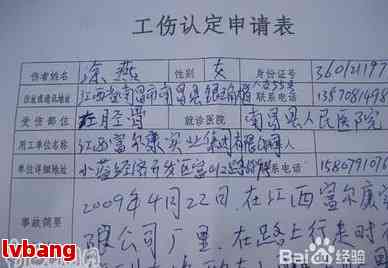 工伤认定申请表
伤者姓名 涂燕 性别 女 身份证号 360121197
住址或通讯地址 江西省南昌市南昌县 联系电话 1357081498
受伤部位 左胫骨 就诊医院 南昌县人民医院
用工单位名称 江西富尔康实业集团有限公司
单位详细地址 小蓝经济开发区富山 路 联系电话 15807910
2009年4月22日,在江西富尔康实
事故简要 限公司厂里,在路上行走时
lvbang
Bai 百科